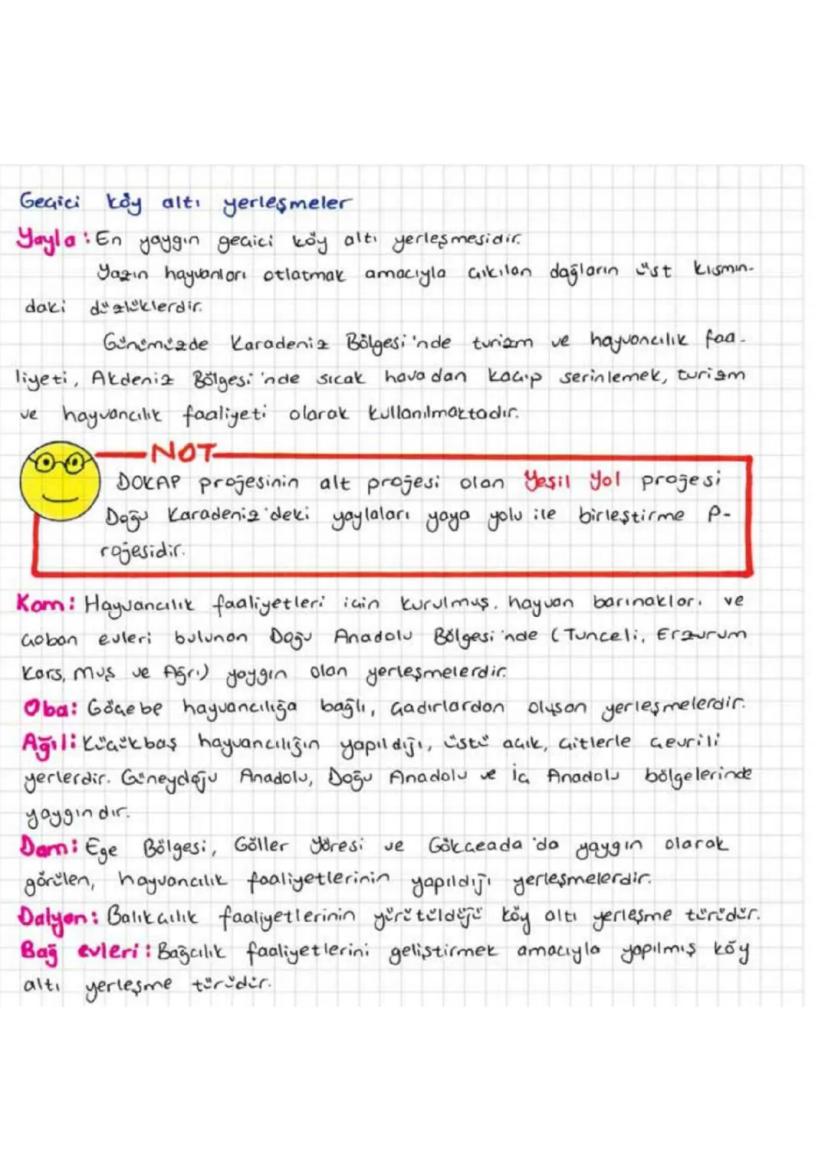 Geçici köy altı yerleşmeler
Yayla: En yaygın geçici köy altı yerleşmesidir.
Yazın hayvanları otlatmak amacıyla çıkılan dağların üst kısmın-
daki düzlüklerdir.
Günümüzde Karadeniz Bölgesi'nde turizm ve hayvancılık faa-
liyeti, Akdeniz Bölgesi'nde sıcak havadan kaçıp serinlemek, turizm
ve hayvancılık faaliyeti olarak kullanılmaktadır.
NOT
DOKAP projesinin alt projesi olan Yeşil Yol projesi
Doğu Karadeniz'deki yaylaları yaya yolu ile birleştirme p-
rojesidir.
Kom: Hayvancılık faaliyetleri için kurulmuş, hayvan barınakları ve
çoban evleri bulunan Doğu Anadolu Bölgesi'nde (Tunceli, Erzurum
Kars, Muş ve Ağrı) yaygın olan yerleşmelerdir.
Oba: Göçebe hayvancılığa bağlı, çadırlardan oluşan yerleşmelerdir.
Ağıl: Küçükbaş hayvancılığın yapıldığı, üstü açık, çitlerle çevrili
yerlerdir. Güneydoğu Anadolu, Doğu Anadolu ve İç Anadolu bölgelerinde
yaygındır.
Dam: Ege Bölgesi, Göller Yöresi ve Gökçeada'da yaygın olarak
görülen, hayvancılık faaliyetlerinin yapıldığı yerleşmelerdir.
Dalyan: Balıkçılık faaliyetlerinin yürütüldüğü köy altı yerleşme türüdür.
Bağ evleri: Bağcılık faaliyetlerini geliştirmek amacıyla yapılmış köy
altı yerleşme türüdür.